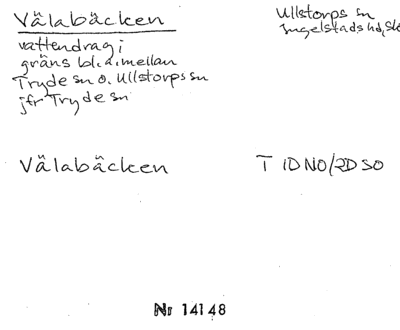 Välabäcken
vattendrag i
gräns bl.a. mellan
Tryde sn o. Ullstorps sn
jfr Tryde sn
Ullstorps sn
Ingelstads hd, Sk
Välabäcken
T 1D NO/2D SO
Nr 14148